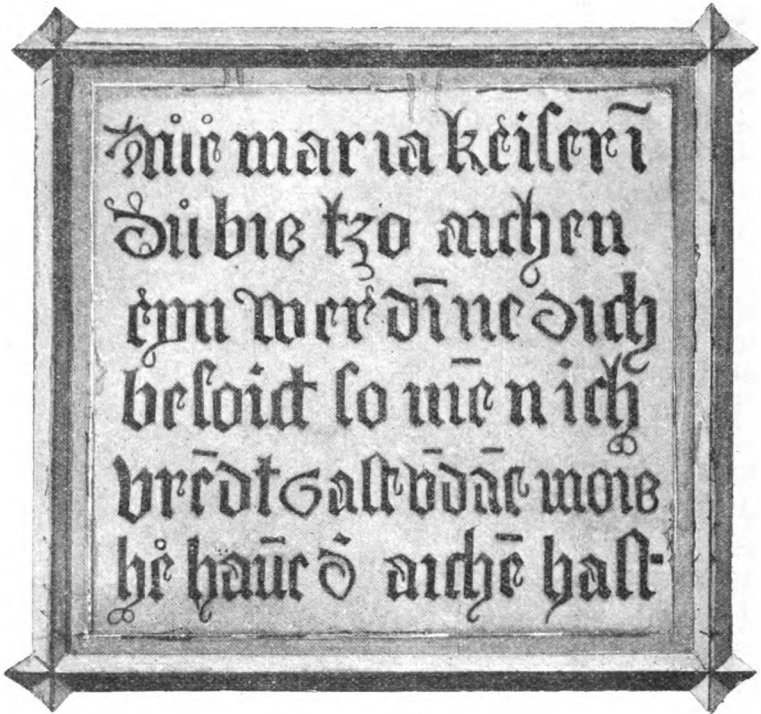 Aůe maria keiſerī
Důbis tzo aichen
eyn werdīne dich
beſoict ſo mēnich
vrēdt Gaſt v̄dāe mois
he haūe d̄ aichē haſt